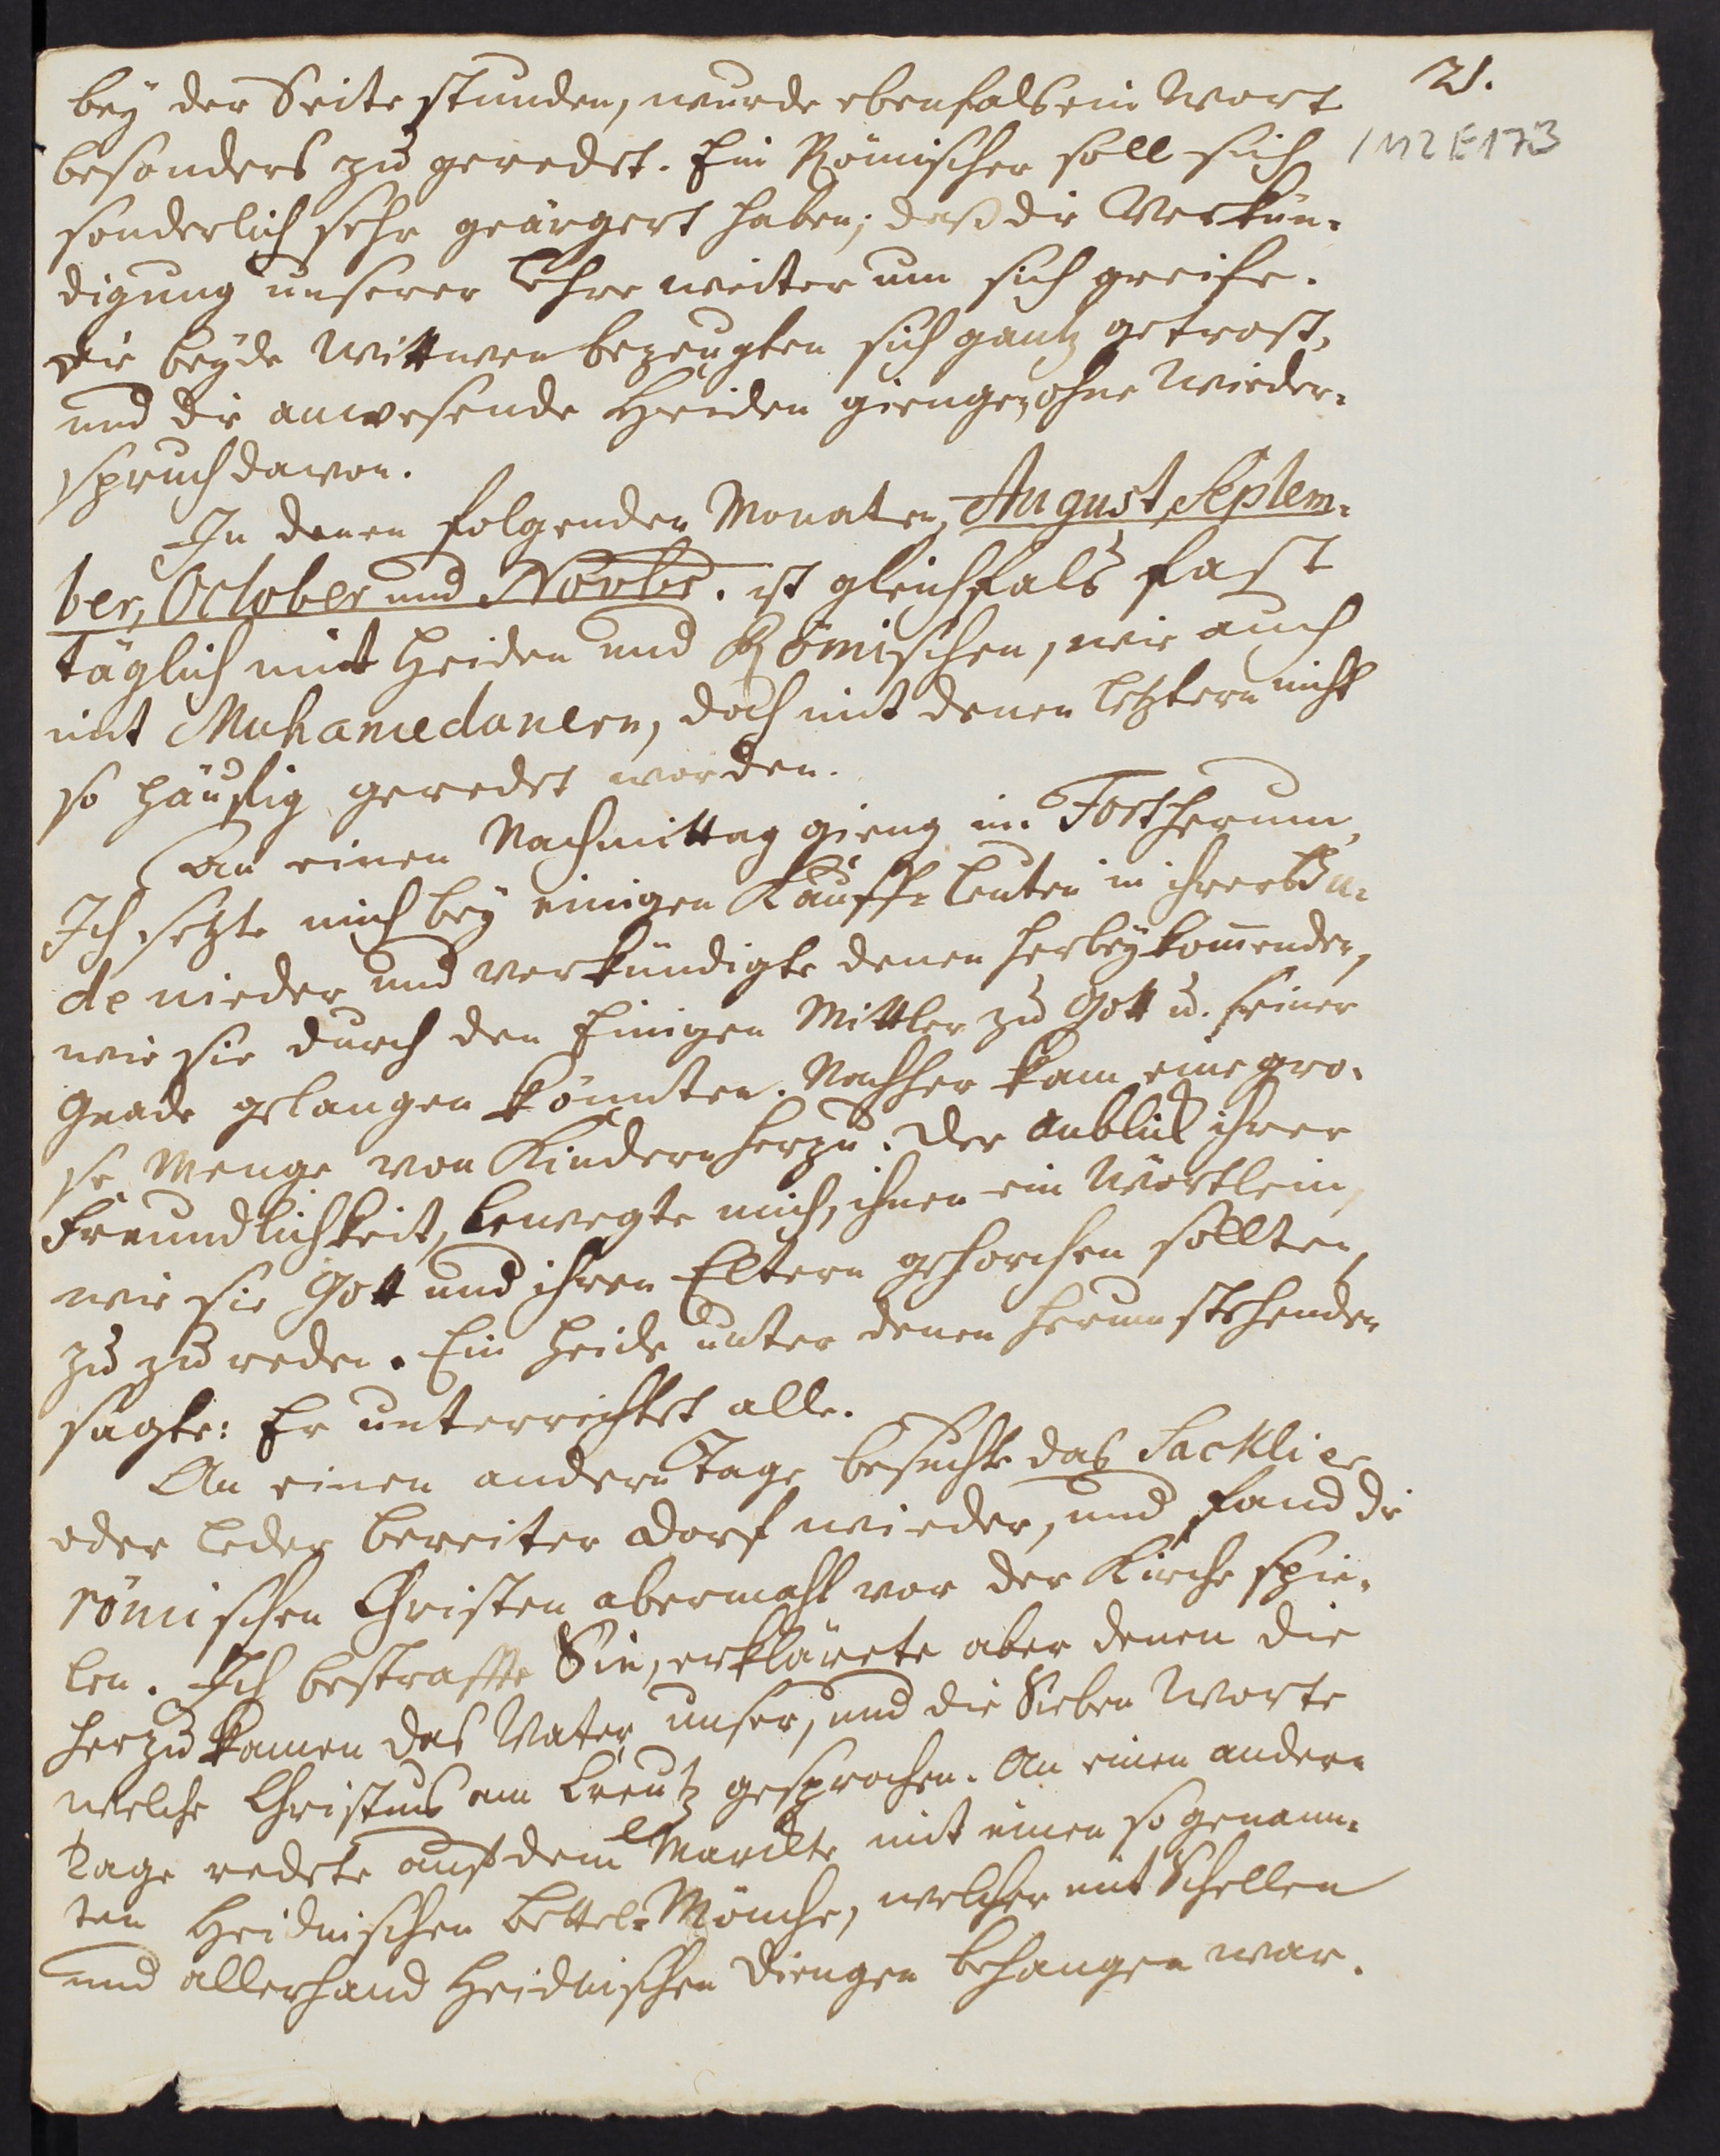 21.
1 M2 E 173
bey der Seite stunden, wurde ebenfals ein Wort
besonders zu geredet. Ein Römischer soll sich
sonderlich sehr geärgert haben, daß die Verkün-
digung unserer Lehre weiter um sich greife.
Die beyde Wittwen bezeugten sich gantz getrost,
und die anwesende Heiden giengen ohne Wieder-
spruch davon.
In denen folgenden Monaten, August, Septem-
ber, October und Novbr. ist gleichfals fast
täglich mit Heiden und Römischen, wie auch
mit Muhamedanern, doch mit denen letztern nicht
so häuffig geredet worden.
An einen Nachmittag gieng im Fort herum,
Ich setzte mich bey einigen Kauff-Leuten in ihrer Bu-
de nieder und verkündigte denen herbey kom̄enden,
wie sie durch den Einigen Mittler zu Gott u. seiner
Gnade gelangen könnten. Nachher kam eine gro-
se Menge von Kindern herzu. Der Anblick ihrer
Freundlichkeit, bewegte mich, ihnen ein Wörtlein,
wie sie Gott und ihren Eltern gehorchen sollten,
zu zu reden. Ein Heide unter denen herum stehenden
sagte: Er unterrichtet alle.
An einen andern Tage besuchte das Sacklier
oder Leder bereiter Dorf wieder, und fand die
römischen Christen abermahl vor der Kirche spie-
len. Ich bestraffte Sie, erklärete aber denen die
herzu kamen das Vater unser, und die Sieben Worte
welche Christus am Creutz gesprochen. An einen andern
Tage redete auf dem Marckte mit einen so genann-
ten Heidnischen Bettel-Mönche, welcher mit Schellen
und allerhand Heidnischen Diengen behangen war.